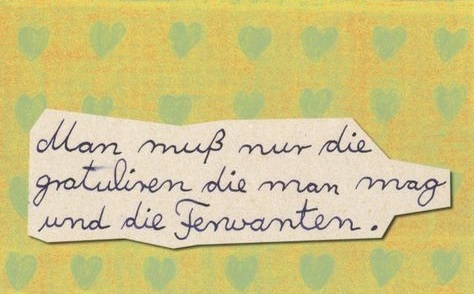 Man muß nur die
gratuliren die man mag
und die Ferwanten.